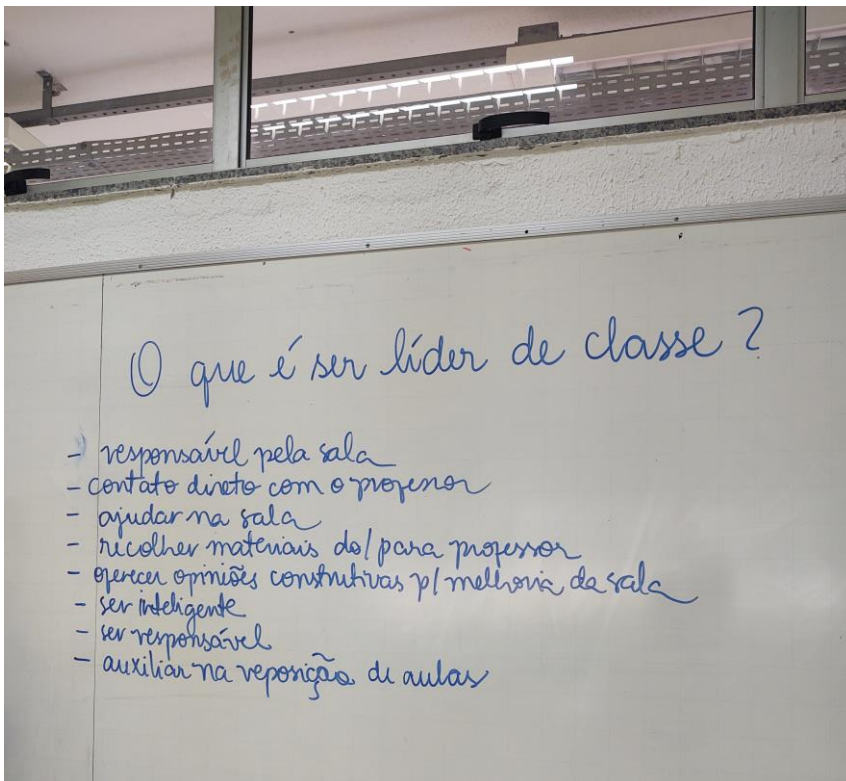 O que é ser líder de classe?
- responsável pela sala
- contato direto com o professor
- ajudar na sala
- recolher materiais do/para professor
- oferecer opiniões construtivas p/ melhoria da sala
- ser inteligente
- ser responsável
- auxiliar na reposição de aulas